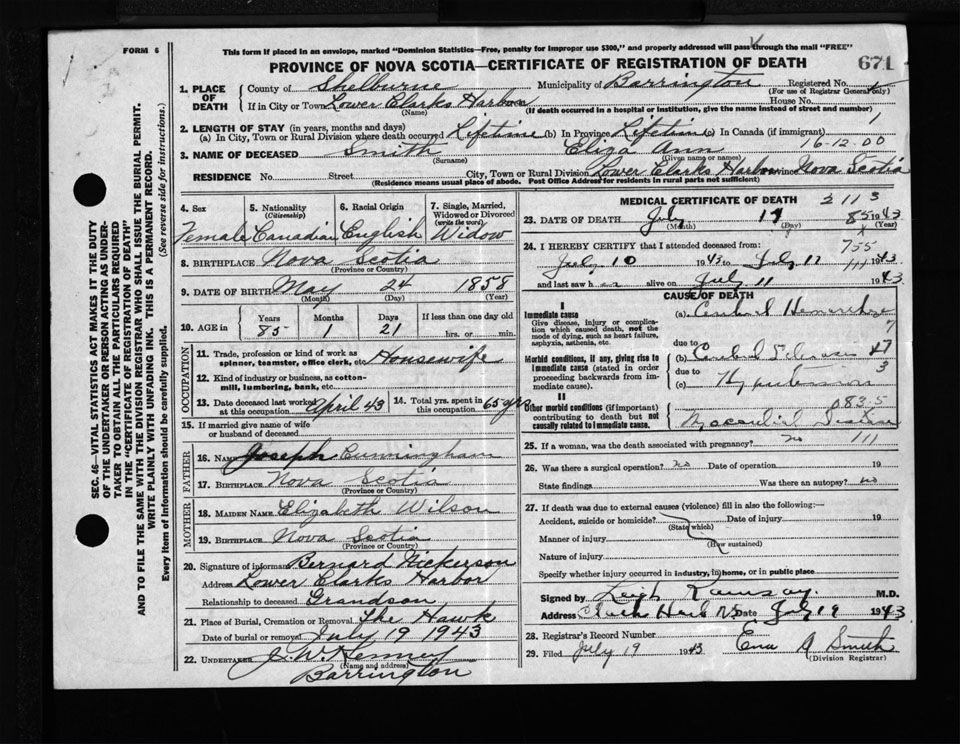 FORM 6
This form if placed in an envelope, marked "Dominion Statistics—Free, penalty for improper use $300," and properly addressed will pass through the mail "FREE"
PROVINCE OF NOVA SCOTIA—CERTIFICATE OF REGISTRATION OF DEATH
671
1. PLACE OF DEATH
County of Shelburne Municipality of Barrington Registered No.
(For use of Registrar General only)
If in City or Town Lower Clarks Harbor House No.
(Name) (If death occurred in a hospital or institution, give the name instead of street and number)
2. LENGTH OF STAY (in years, months and days)
(a) In City, Town or Rural Division where death occurred Lifetime (b) In Province Lifetime (c) In Canada (if immigrant)
1
16-12.00
3. NAME OF DECEASED Smith Eliza Ann
(Surname) (Given name or names)
RESIDENCE No. Street City, Town or Rural Division Lower Clarks Harbor Province Nova Scotia
(Residence means usual place of abode. Post Office Address for residents in rural parts not sufficient)
4. Sex 5. Nationality (Citizenship) 6. Racial Origin 7. Single, Married, Widowed or Divorced (write the word)
Female Canadian English Widow
8. BIRTHPLACE Nova Scotia
(Province or Country)
9. DATE OF BIRTH May 24 1858
(Month) (Day) (Year)
10. AGE in Years Months Days If less than one day old
85 1 21 hrs. or min.
OCCUPATION
11. Trade, profession or kind of work as spinner, teamster, office clerk, etc. Housewife
12. Kind of industry or business, as cotton-mill, lumbering, bank, etc.
13. Date deceased last worked at this occupation April 43 14. Total yrs. spent in this occupation 65 yrs
15. If married give name of wife or husband of deceased
FATHER
16. Name Joseph Cunningham
17. Birthplace Nova Scotia
(Province or Country)
MOTHER
18. Maiden Name Elizabeth Wilson
19. Birthplace Nova Scotia
(Province or Country)
20. Signature of informant Bernard Nickerson
Address Lower Clarks Harbor
Relationship to deceased Grandson
21. Place of Burial, Cremation or Removal The Hawk
Date of burial or removal July 19 1943
22. Undertaker
(Name and address)
Barrington
MEDICAL CERTIFICATE OF DEATH
2 11 3
23. DATE OF DEATH July 17 85 1943
(Month) (Day) (Year)
24. I HEREBY CERTIFY that I attended deceased from:
755
July 10 1943 to July 17 1943
111
and last saw h alive on July 11 1943
CAUSE OF DEATH
I
Immediate cause
Give disease, injury or complication which caused death, not the mode of dying, such as heart failure, asphyxia, asthenia, etc.
(a) Cerebral Hemorrhage
7
due to
Morbid conditions, if any, giving rise to immediate cause (stated in order proceeding backwards from immediate cause).
(b) Cerebral Sclerosis 47
due to 3
(c) Hypertension
II
Other morbid conditions (if important) contributing to death but not causally related to immediate cause.
083-5
25. If a woman, was the death associated with pregnancy? no 111
26. Was there a surgical operation? no Date of operation 19
State findings Was there an autopsy? no
27. If death was due to external causes (violence) fill in also the following:—
Accident, suicide or homicide? Date of injury 19
(State which)
Manner of injury
(How sustained)
Nature of injury
Specify whether injury occurred in industry, in home, or in public place
Signed by M.D.
Address Clarks Harb NS Date July 19 1943
28. Registrar's Record Number
29. Filed July 19 1943 Ena A Smith
(Division Registrar)
SEC. 46—VITAL STATISTICS ACT MAKES IT THE DUTY
OF THE UNDERTAKER OR PERSON ACTING AS UNDERTAKER TO OBTAIN ALL THE PARTICULARS REQUIRED
IN THE "CERTIFICATE OF REGISTRATION OF DEATH"
AND TO FILE THE SAME WITH THE DIVISION REGISTRAR WHO SHALL ISSUE THE BURIAL PERMIT.
WRITE PLAINLY WITH UNFADING INK. THIS IS A PERMANENT RECORD.
Every item of information should be carefully supplied. (See reverse side for instructions.)